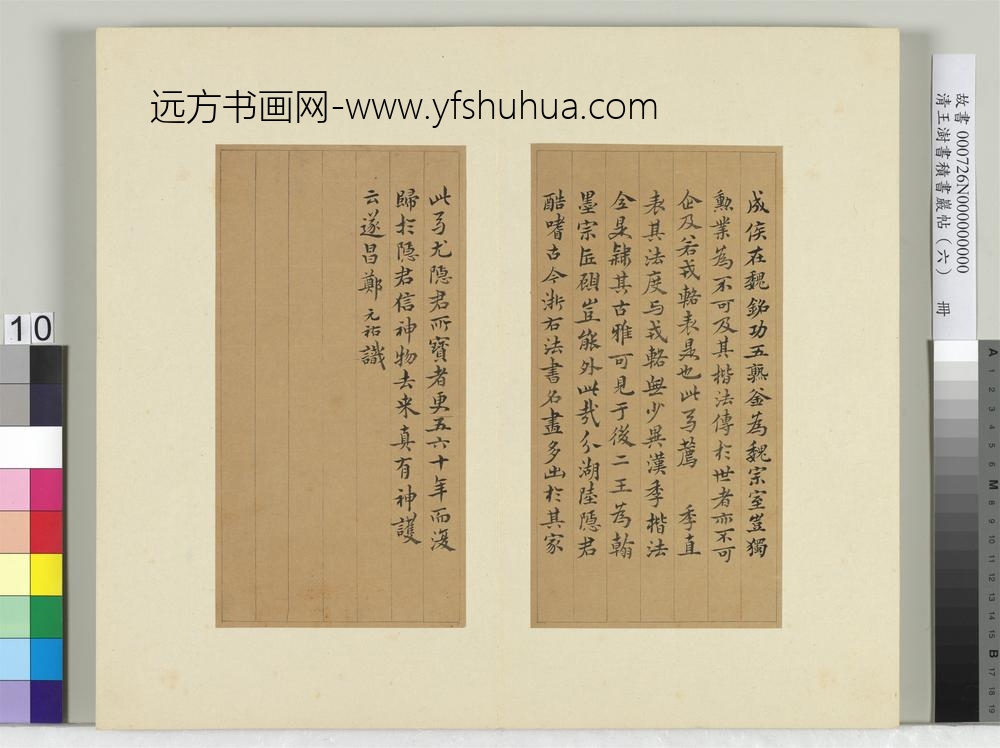 远方书画网-www.yfshuhua.com
成侯在魏銘功五熟釜為魏宗室豈獨
勳業為不可及其楷法傳於世者亦不可
企及若戎輅表是也此為薦 季直
表其法度与戎輅無少異漢季楷法
全是隸其古雅可見于後二王為翰
墨宗匠碩豈能外此哉分湖陸隱君
酷嗜古今浙右法書名畫多出於其家
此乃尤隱君所寶者更五六十年而復
歸於隱君信神物去来真有神護
云遂昌鄭元祐識
故書 000726N000000000
清王澍書積書巖帖(六) 冊
10
A 1 2 3 4 5 6 M 8 9 10 11 12 13 14 15 B 17 18 19